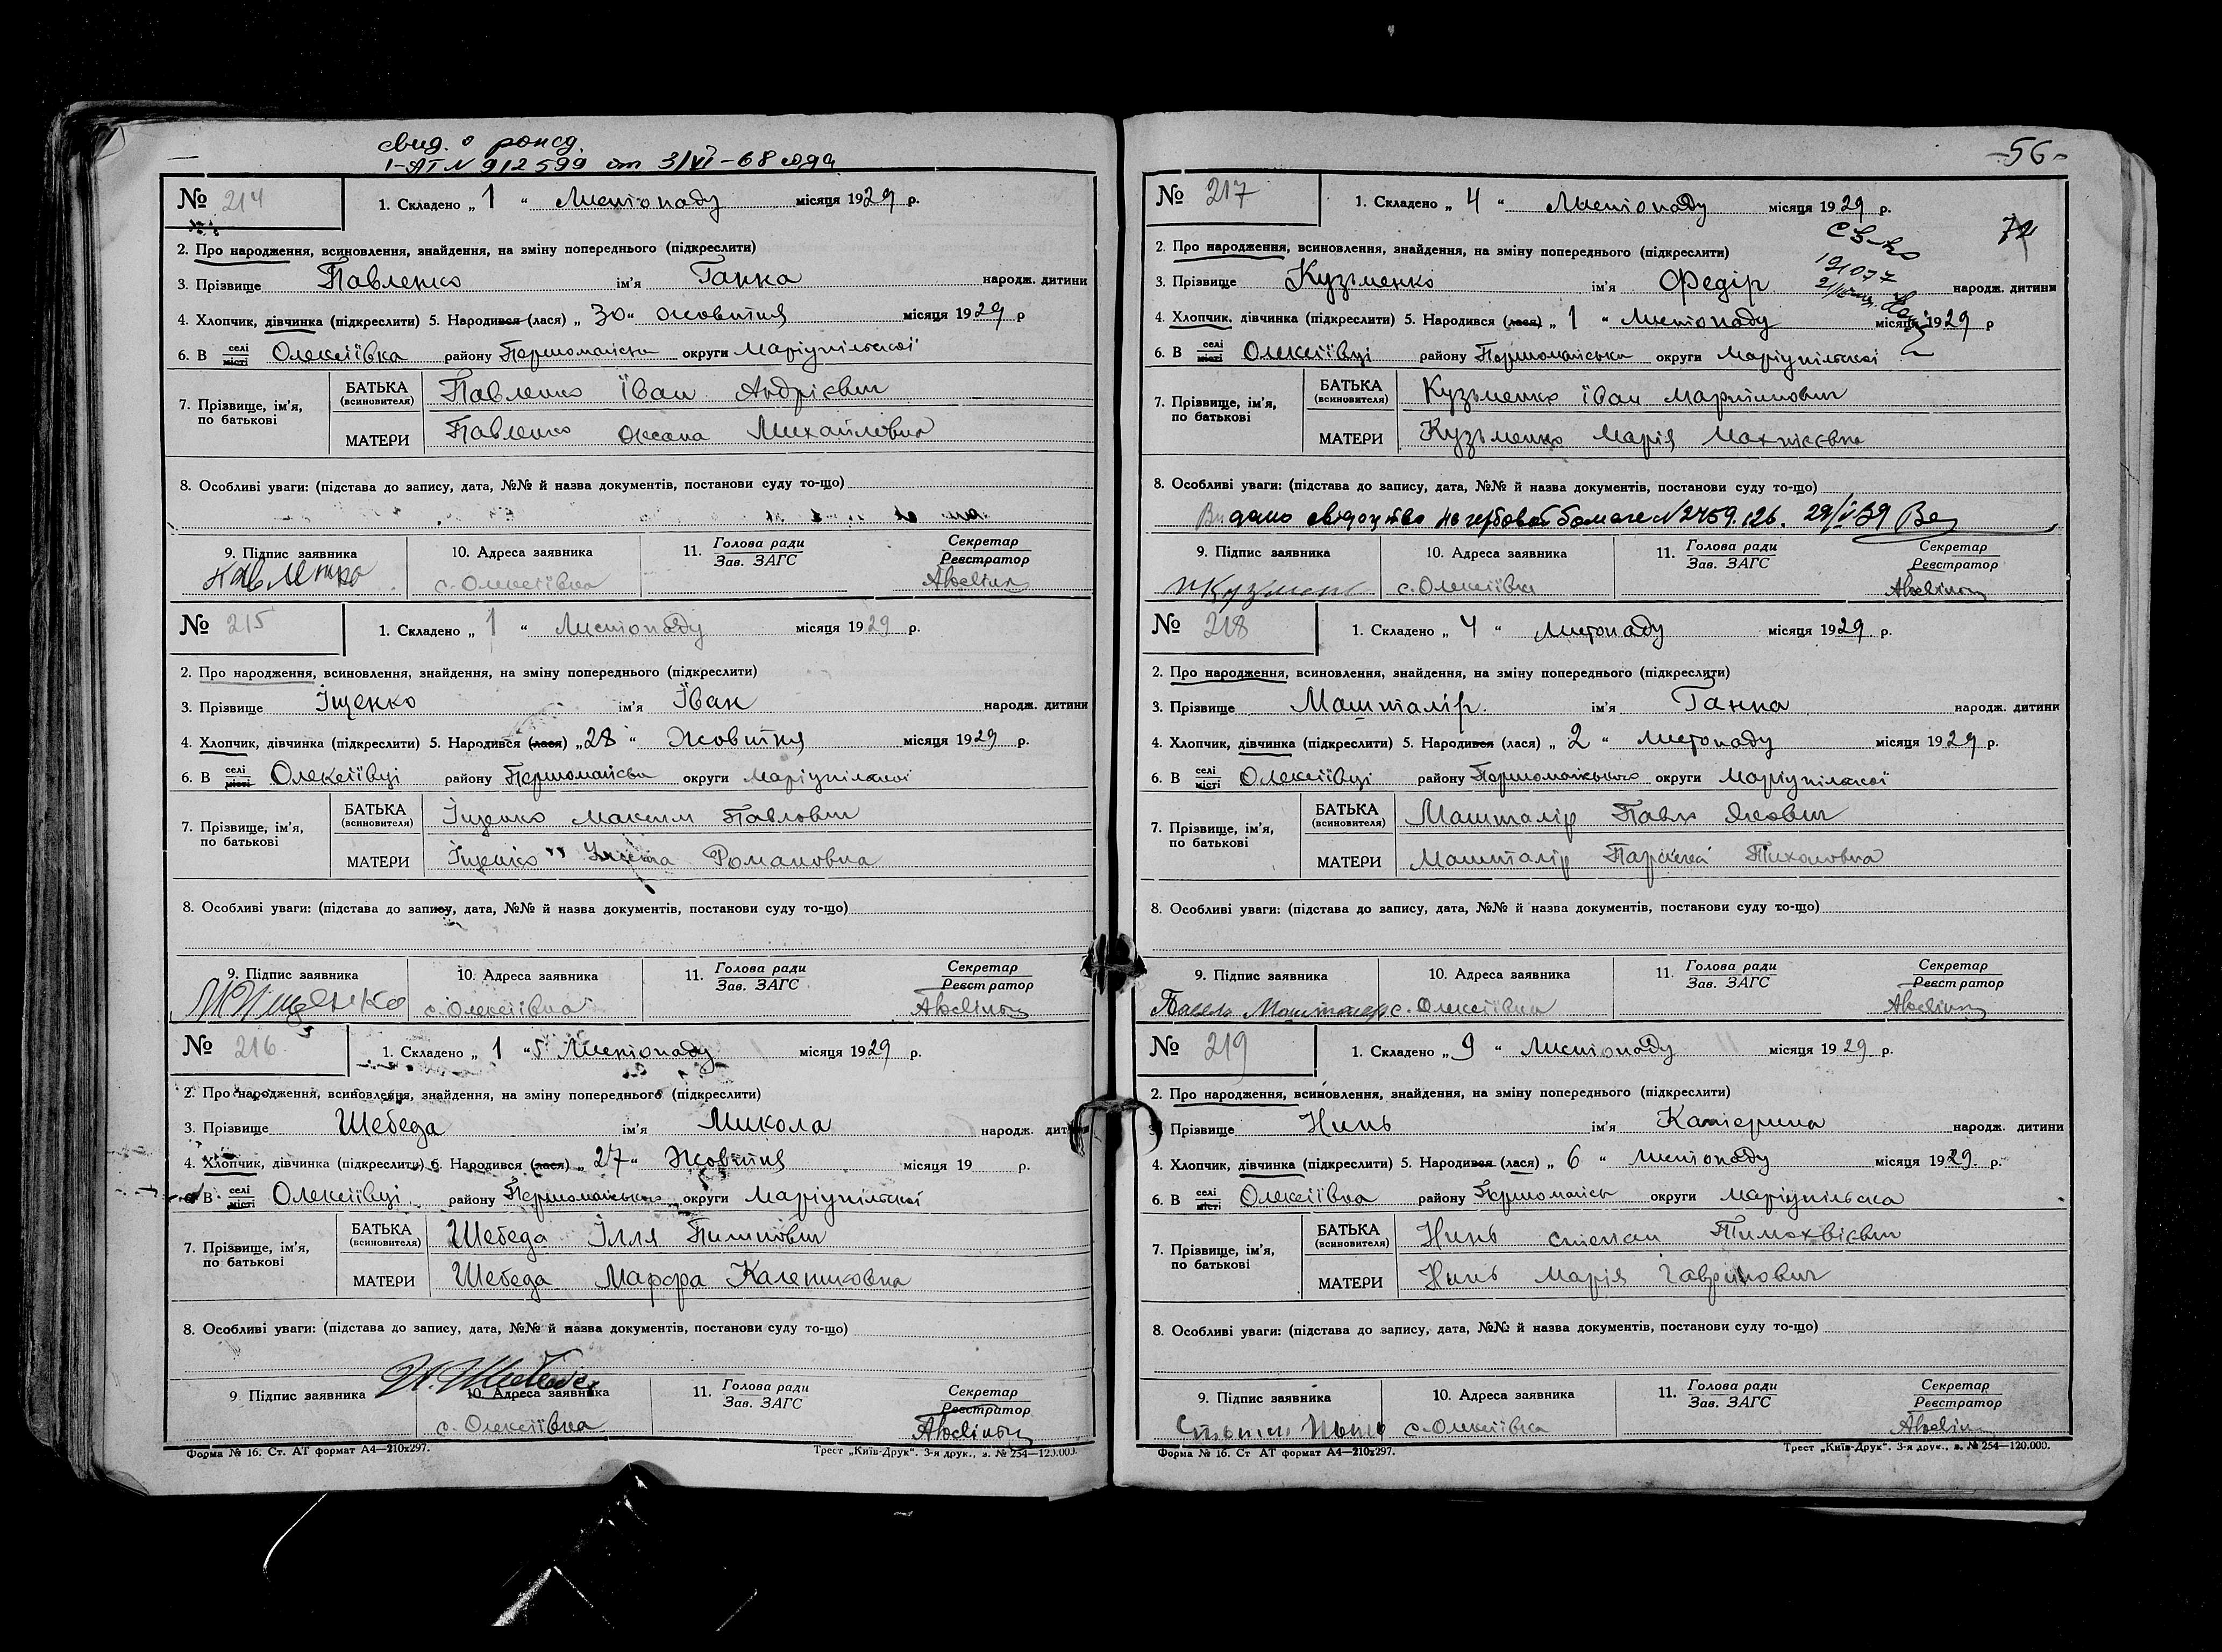 свид. о рожд.
I-АТ N 912599 от 3/VI-68 года
№ 214
1. Складено „ 1 “ Листопаду місяця 1929 р.
2. Про народження, всиновлення, знайдення, на зміну попереднього (підкреслити)
3. Прізвище Павленко ім'я Ганна народж. дитини
4. Хлопчик, дівчинка (підкреслити) 5. Народився (лася) „ 30 “ жовтня місяця 1929 р
6. В селі місті Олексіївка району Першомайськ округи Маріупільської
7. Прізвище, ім'я, по батькові
БАТЬКА (всиновителя) Павленко Іван Андрієвич
МАТЕРИ Павленко Оксана Михайловна
8. Особливі уваги: (підстава до запису, дата, №№ й назва документів, постанови суду то-що)
9. Підпис заявника 10. Адреса заявника 11. Голова ради Зав. ЗАГС Секретар Реєстратор
Павленко с. Олексіївка
№ 215
1. Складено „ 1 “ Листопаду місяця 1929 р.
2. Про народження, всиновлення, знайдення, на зміну попереднього (підкреслити)
3. Прізвище Іщенко ім'я Іван народж. дитини
4. Хлопчик, дівчинка (підкреслити) 5. Народився (лася) „ 28 “ Жовтня місяця 1929 р.
6. В селі місті Олексіївці району Першомайськ округи Маріупільської
7. Прізвище, ім'я, по батькові
БАТЬКА (всиновителя) Іщенко Максим Павлович
МАТЕРИ Іщенко Романовна
8. Особливі уваги: (підстава до запису, дата, №№ й назва документів, постанови суду то-що)
9. Підпис заявника 10. Адреса заявника 11. Голова ради Зав. ЗАГС Секретар Реєстратор
М Іщенко с. Олексіївка
№ 216
1. Складено „ 1 “ Листопаду місяця 1929 р.
2. Про народження, всиновлення, знайдення, на зміну попереднього (підкреслити)
3. Прізвище Шебеда ім'я Микола народж. дитини
4. Хлопчик, дівчинка (підкреслити) 5. Народився (лася) „ 27 “ Жовтня місяця 19 р.
6. В селі місті Олексіївці району Першомайського округи Маріупільської
7. Прізвище, ім'я, по батькові
БАТЬКА (всиновителя) Шебеда Ілля Пилипович
МАТЕРИ Шебеда Марфа Калениковна
8. Особливі уваги: (підстава до запису, дата, №№ й назва документів, постанови суду то-що)
9. Підпис заявника 10. Адреса заявника 11. Голова ради Зав. ЗАГС Секретар Реєстратор
И. Шебеда с. Олексіївка
Форма № 16. Ст. АТ формат А4—210x297. Трест „Київ-Друк“. 3-я друк., з. № 254—120.000.
-56-
№ 217
1. Складено „ 4 “ Листопаду місяця 1929 р.
2. Про народження, всиновлення, знайдення, на зміну попереднього (підкреслити)
св-во
191077
3. Прізвище Кузьменко ім'я Федір народж. дитини
4. Хлопчик, дівчинка (підкреслити) 5. Народився (лася) „ 1 “ Листопаду місяця 1929 р
6. В селі місті Олексіївці району Першомайська округи Маріупільської
7. Прізвище, ім'я, по батькові
БАТЬКА (всиновителя) Кузьменко Іван Мартинович
МАТЕРИ Кузьменко Марія
8. Особливі уваги: (підстава до запису, дата, №№ й назва документів, постанови суду то-що)
Видано свідоцтво на гербовой бомаге N 2459.126. 29/V 39
9. Підпис заявника 10. Адреса заявника 11. Голова ради Зав. ЗАГС Секретар Реєстратор
с. Олексіївка
№ 218
1. Складено „ 4 “ Листопаду місяця 1929 р.
2. Про народження, всиновлення, знайдення, на зміну попереднього (підкреслити)
3. Прізвище Машталір ім'я Ганна народж. дитини
4. Хлопчик, дівчинка (підкреслити) 5. Народився (лася) „ 2 “ Листопаду місяця 1929 р.
6. В селі місті Олексіївці району Першомайського округи Маріупільської
7. Прізвище, ім'я, по батькові
БАТЬКА (всиновителя) Машталір Павло Якович
МАТЕРИ Машталір Тихоновна
8. Особливі уваги: (підстава до запису, дата, №№ й назва документів, постанови суду то-що)
9. Підпис заявника 10. Адреса заявника 11. Голова ради Зав. ЗАГС Секретар Реєстратор
Павел Машталер с. Олексіївка
№ 219
1. Складено „ 9 “ Листопаду місяця 1929 р.
2. Про народження, всиновлення, знайдення, на зміну попереднього (підкреслити)
3. Прізвище Нинь ім'я Катерина народж. дитини
4. Хлопчик, дівчинка (підкреслити) 5. Народився (лася) „ 6 “ Листопаду місяця 1929 р.
6. В селі місті Олексіївка району Першомайськ округи Маріупільска
7. Прізвище, ім'я, по батькові
БАТЬКА (всиновителя) Нинь Степан Тимохвієвич
МАТЕРИ Нинь Марія Гаврилович
8. Особливі уваги: (підстава до запису, дата, №№ й назва документів, постанови суду то-що)
9. Підпис заявника 10. Адреса заявника 11. Голова ради Зав. ЗАГС Секретар Реєстратор
с. Олексіївка
Форма № 16. Ст АТ формат А4—210x297. Трест „Київ-Друк“. 3-я друк., з. № 254—120.000.